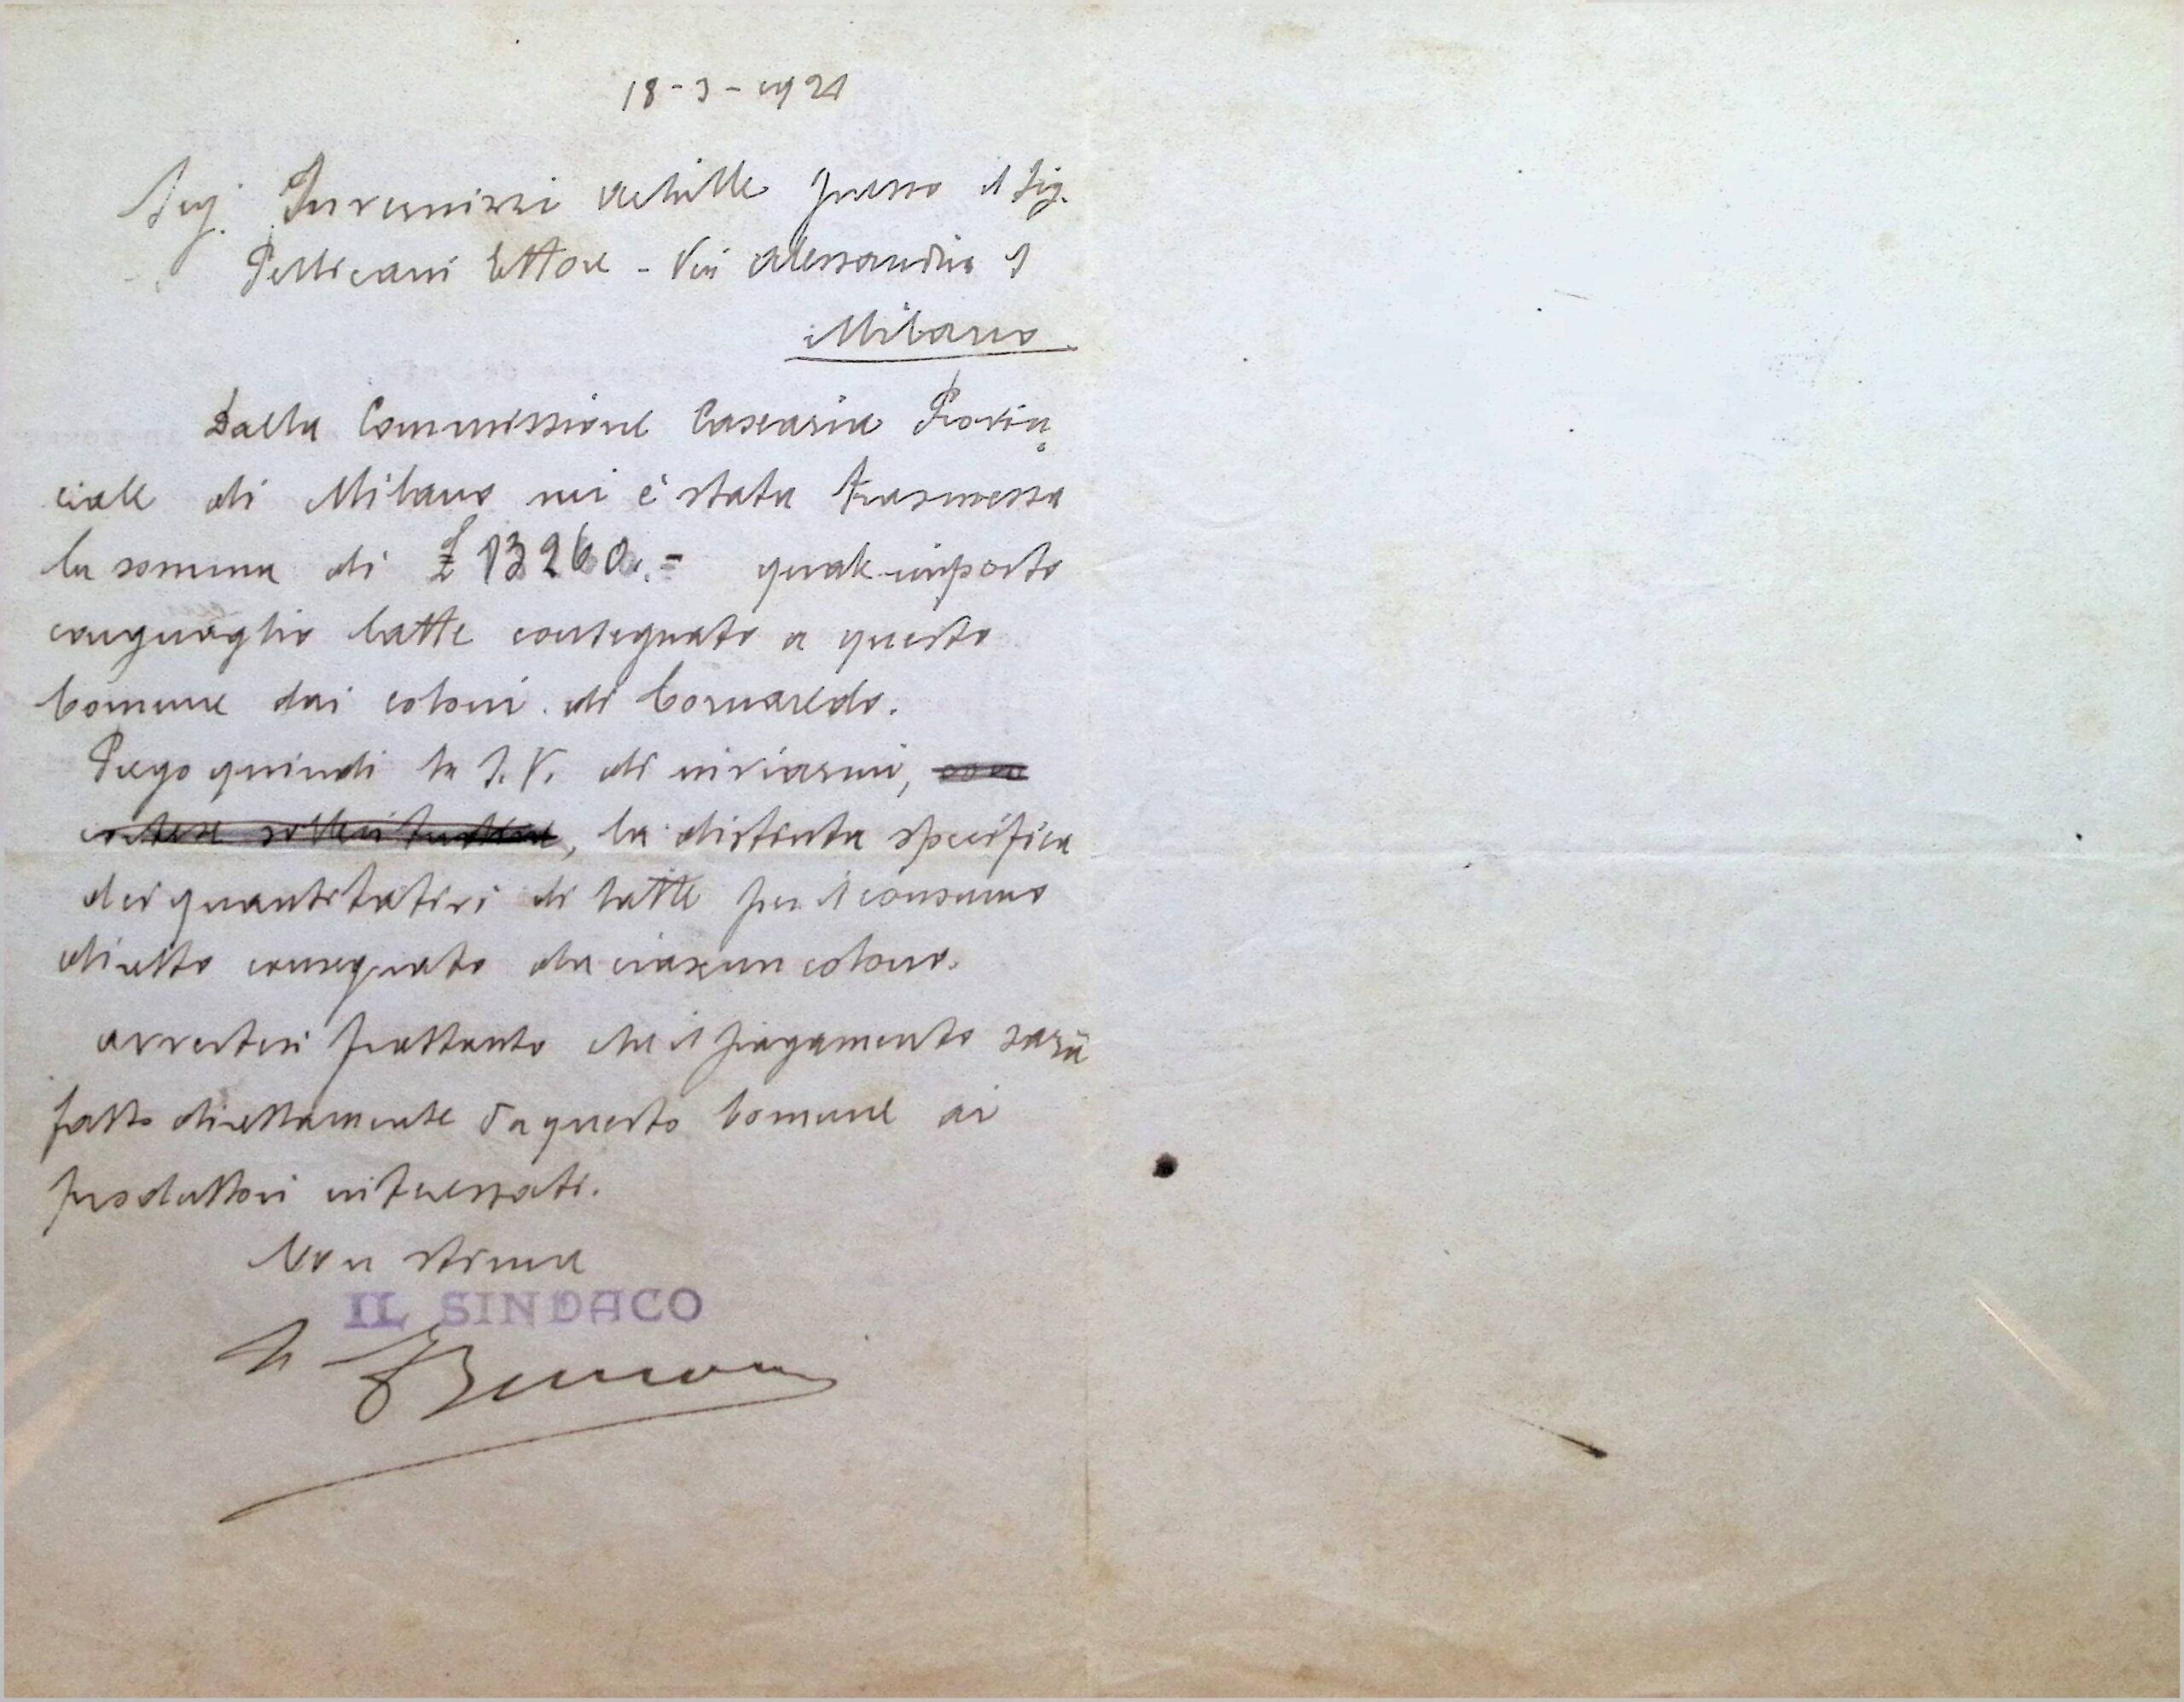 18-3-1921
Sig. Invernizzi Achille presso il Sig.
Pellicani Ettore - Via Alessandria 9
Milano
Dalla Commissione Casearia Provin
ciale di Milano mi è stata trasmessa
la somma di £ 13260.= quale importo
conguaglio latte consegnato a questo
Comune dai coloni di Cornaredo.
Prego quindi la S.V. di inviarmi,
, la distinta specifica
dei quantitativi di latte per il consumo
diretto consegnato da ciascun colono.
Avvertesi frattanto che il pagamento sarà
fatto direttamente da questo Comune ai
produttori interessati.
Con stima
IL SINDACO